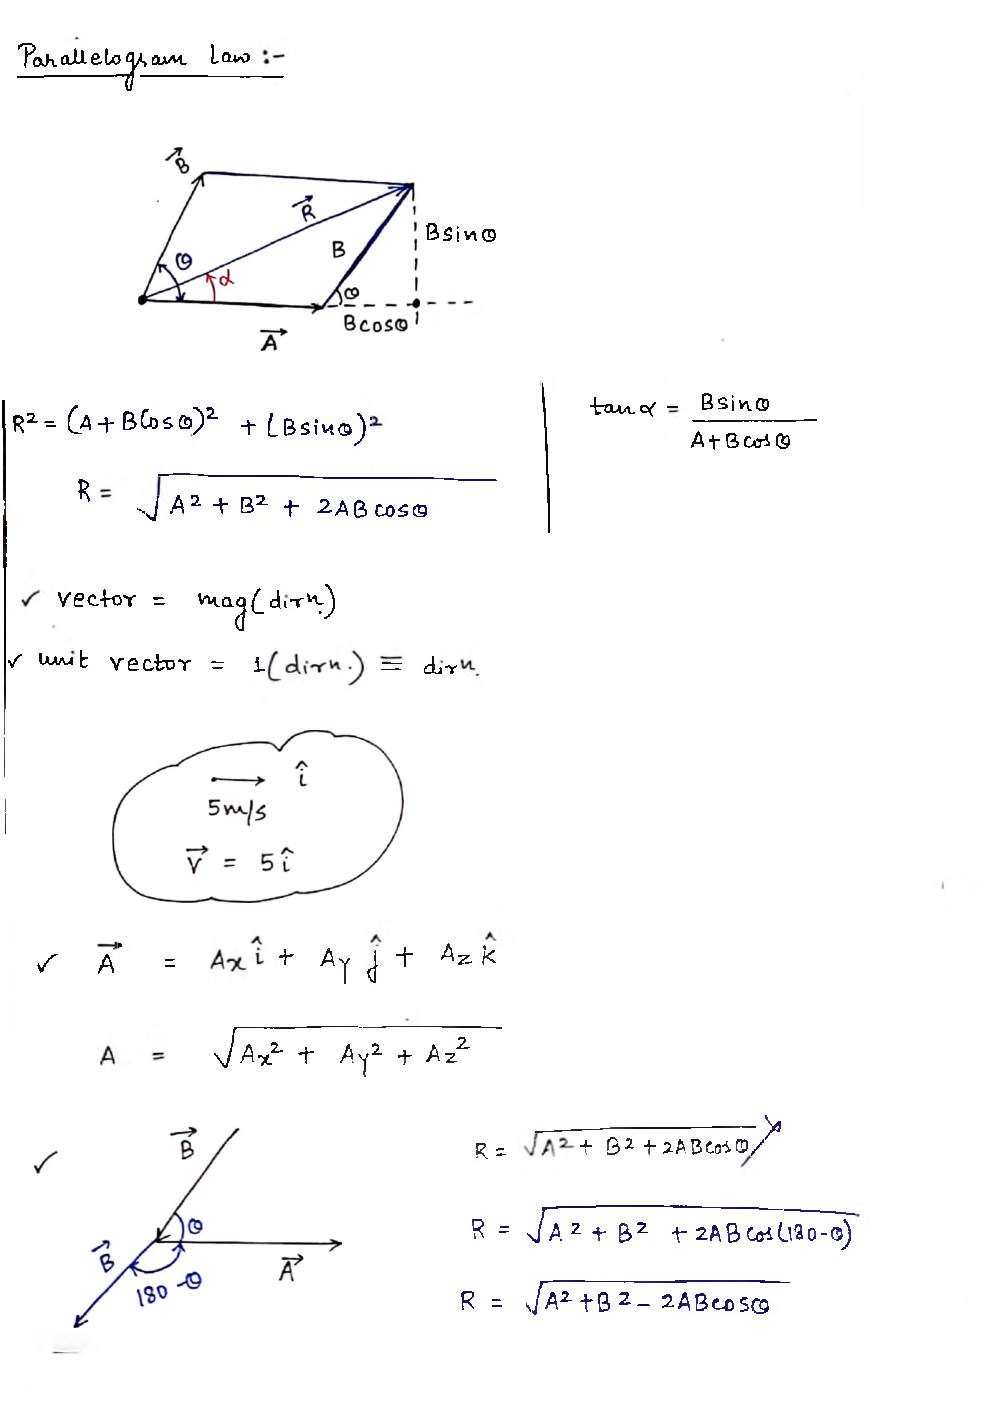 Parallelogram Law :-
→B
→R
B sinθ
B
θ
α
θ
B cosθ
→A
R² = (A + B Cosθ)² + (B sinθ)²
tan α = B sinθ / A + B cosθ
R = √A² + B² + 2AB cosθ
✓ vector = mag (dirn.)
✓ unit vector = 1 (dirn.) ≡ dirn.
→ î
5 m/s
→V = 5 î
✓ →A = Ax î + Ay ĵ + Az k̂
A = √Ax² + Ay² + Az²
✓ →B
R = √A² + B² + 2AB cosθ
θ
→B
180 - θ
→A
R = √A² + B² + 2AB cos (180 - θ)
R = √A² + B² - 2AB cosθ